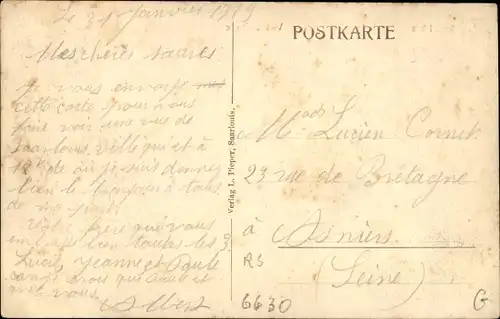 Le 31 Janvier 1919
Mes chères sœurs
Je vous envoie
cette carte pour vous
faire voir une vue de
Saarlouis ville qui est à
12 k de où je suis donnez
bien le bonjour à tous
de ma part
frère qui vous
embrasse bien toutes les
Lucie, Jeanne et Paule
vois que
vous
Albert
Verlag L. Pieper, Saarlouis.
POSTKARTE
Mad Lucien Cornet
23 rue de Bretagne
à
Asnières
(Seine)
RS
6630
G